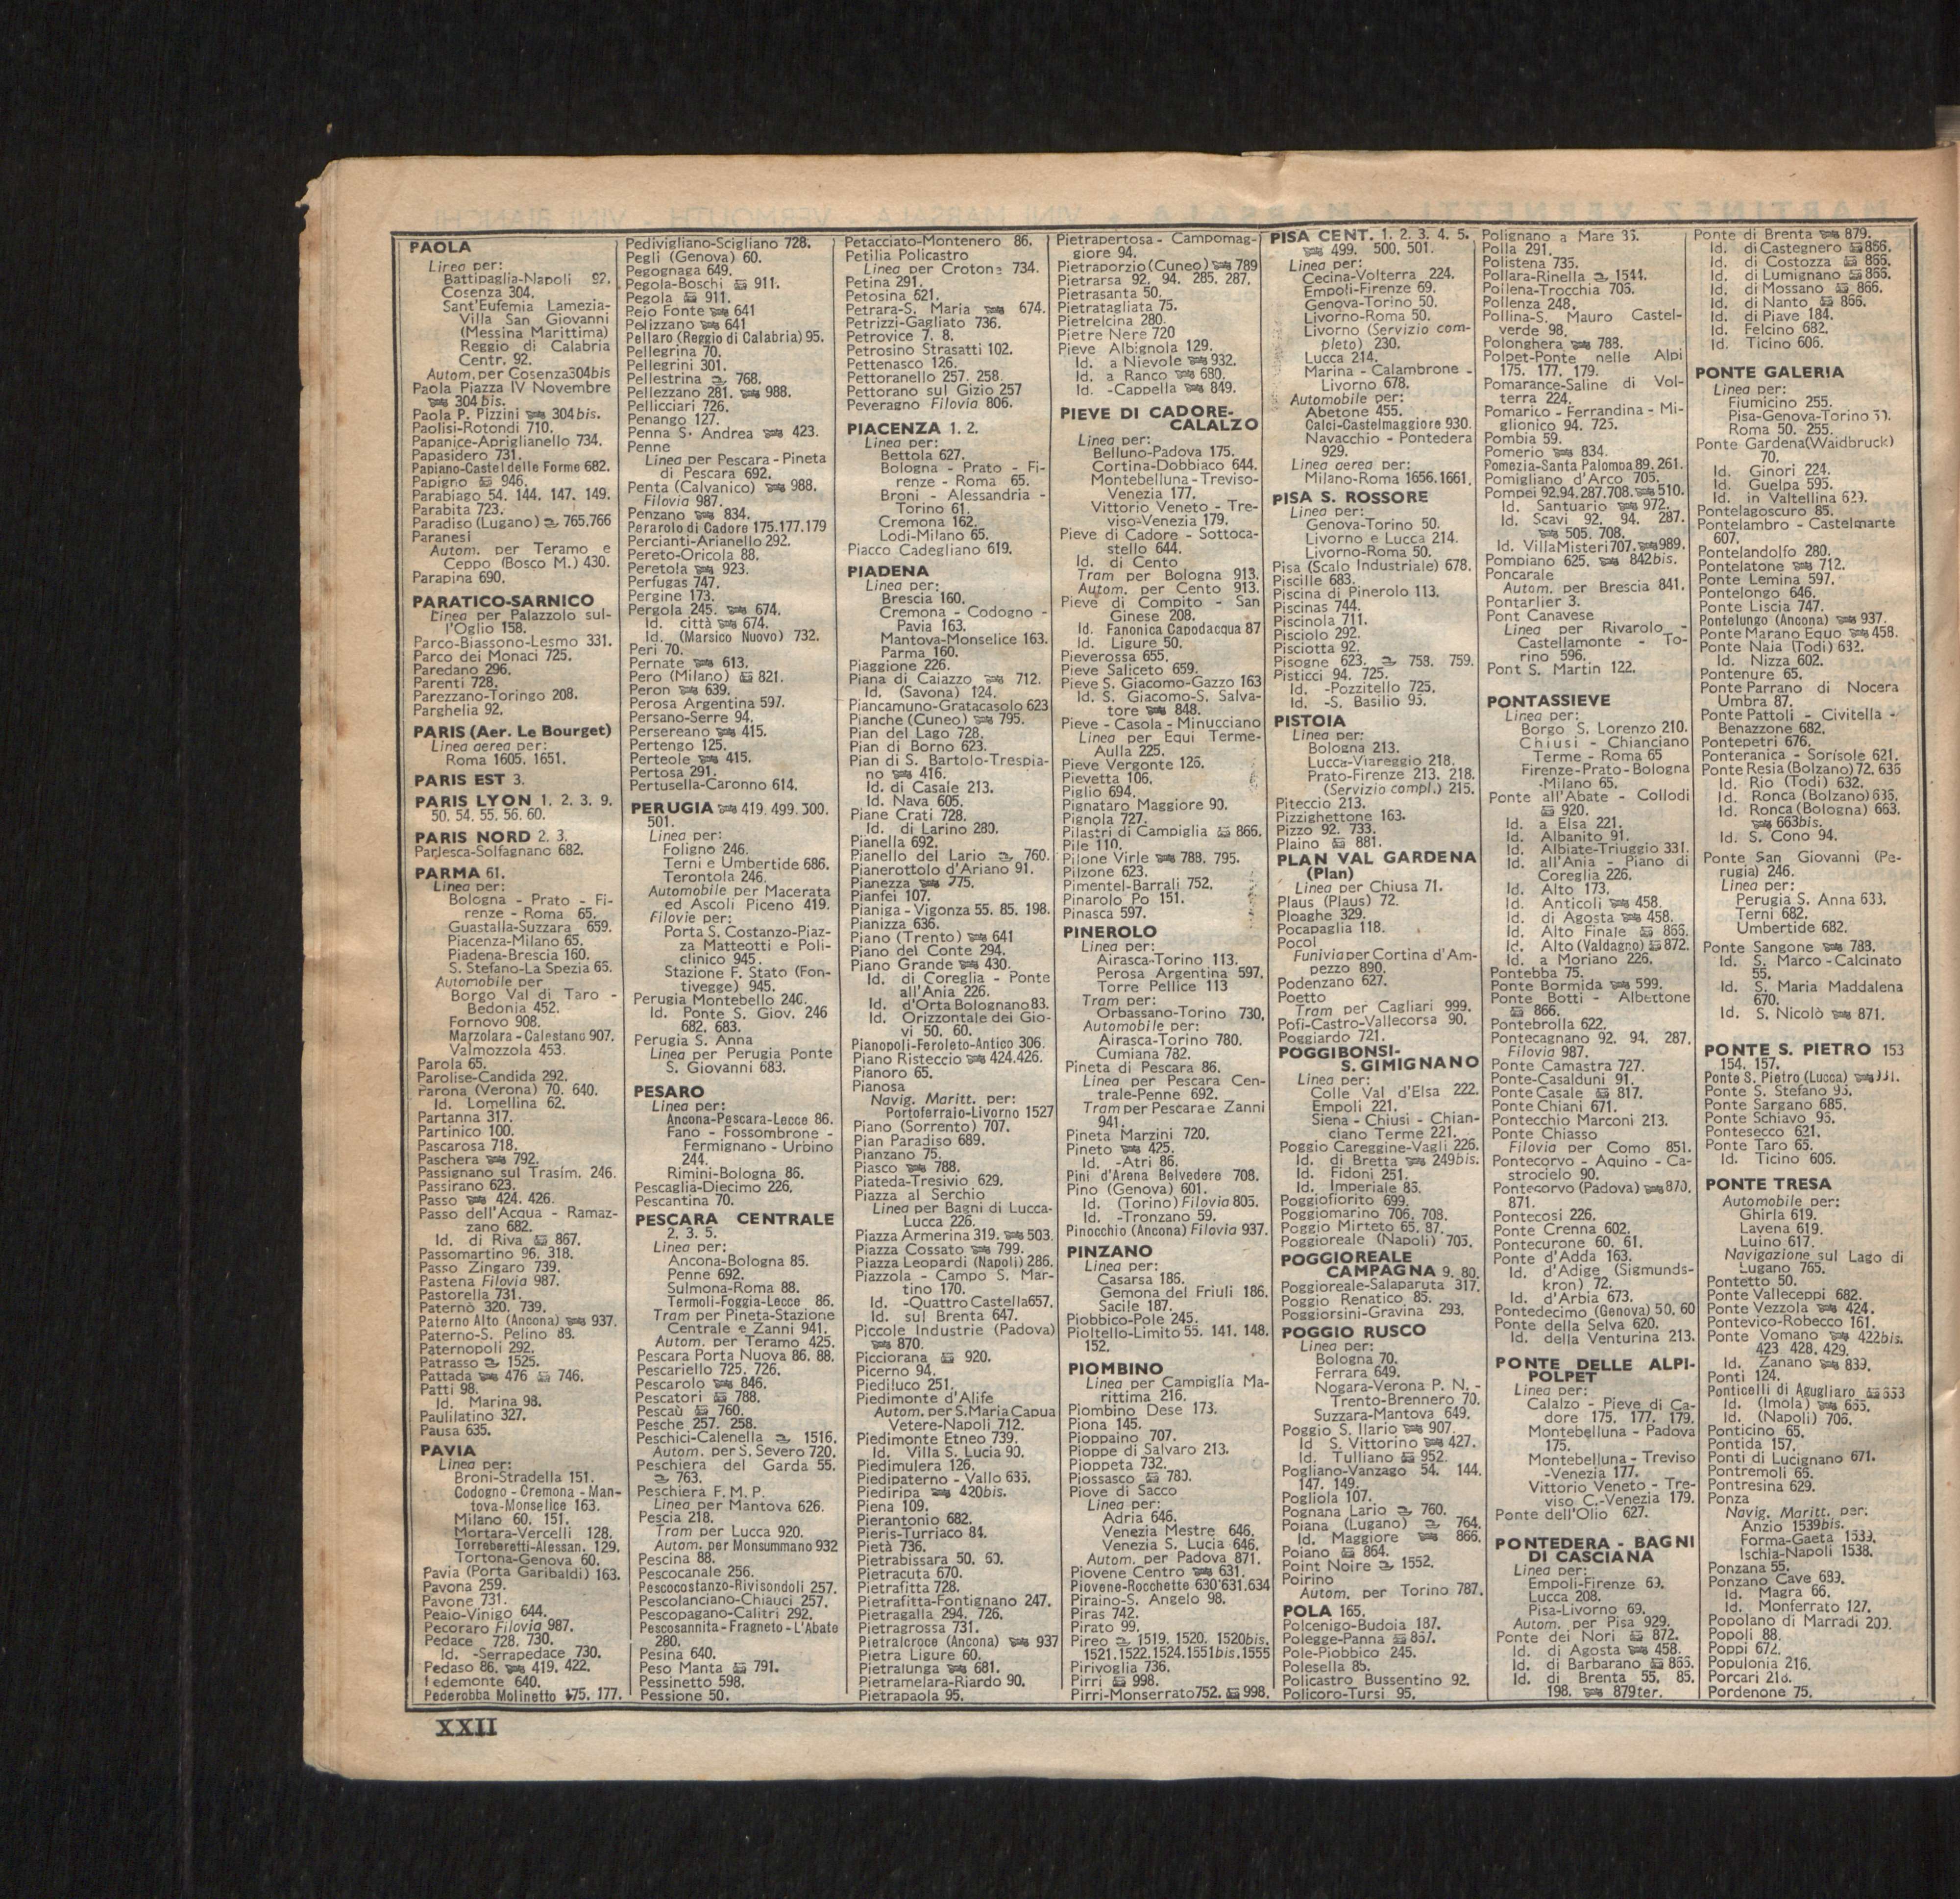 PAOLA
Linea per:
Battipaglia-Napoli 92.
Cosenza 304.
Sant'Eufemia Lamezia-
Villa San Giovanni
(Messina Marittima)
Reggio di Calabria
Centr. 92.
Autom. per Cosenza 304bis
Paola Piazza IV Novembre
304bis.
Paola P. Pizzini 304bis.
Paolisi-Rotondi 710.
Papanice-Apriglianello 734.
Papasidero 731.
Papiano-Castel delle Forme 682.
Papigno 946.
Parabiago 54. 144. 147. 149.
Parabita 723.
Paradiso (Lugano) 765.766
Paranesi
Autom. per Teramo e
Ceppo (Bosco M.) 430.
Parapina 690.
PARATICO-SARNICO
Linea per Palazzolo sul-
l'Oglio 158.
Parco-Biassono-Lesmo 331.
Parco dei Monaci 725.
Paredano 296.
Parenti 728.
Parezzano-Toringo 208.
Parghelia 92.
PARIS (Aer. Le Bourget)
Linea aerea per:
Roma 1605. 1651.
PARIS EST 3.
PARIS LYON 1. 2. 3. 9.
50. 54. 55. 56. 60.
PARIS NORD 2. 3.
Parlesca-Solfagnano 682.
PARMA 61.
Linea per:
Bologna - Prato - Fi-
renze - Roma 65.
Guastalla-Suzzara 659.
Piacenza-Milano 65.
Piadena-Brescia 160.
S. Stefano-La Spezia 65.
Automobile per
Borgo Val di Taro -
Bedonia 452.
Fornovo 908.
Marzolara-Calestano 907.
Valmozzola 453.
Parola 65.
Parolise-Candida 292.
Parona (Verona) 70. 640.
Id. Lomellina 62.
Partanna 317.
Partinico 100.
Pascarosa 718.
Paschera 792.
Passignano sul Trasim. 246.
Passirano 623.
Passo 424. 426.
Passo dell'Acqua - Ramaz-
zano 682.
Id. di Riva 867.
Passomartino 96. 318.
Passo Zingaro 739.
Pastena Filovia 987.
Pastorella 731.
Paternò 320. 739.
Paterno Alto (Ancona) 937.
Paterno-S. Pelino 88.
Paternopoli 292.
Patrasso 1525.
Pattada 476 746.
Patti 98.
Id. Marina 98.
Paulilatino 327.
Pausa 635.
PAVIA
Linea per:
Broni-Stradella 151.
Codogno - Cremona - Man-
tova-Monselice 163.
Milano 60. 151.
Mortara-Vercelli 128.
Torreberetti-Alessan. 129.
Tortona-Genova 60.
Pavia (Porta Garibaldi) 163.
Pavona 259.
Pavone 731.
Peaio-Vinigo 644.
Pecoraro Filovia 987.
Pedace 728. 730.
Id. -Serrapedace 730.
Pedaso 86. 419. 422.
Pedemonte 640.
Pederobba Molinetto 175. 177.
Pedivigliano-Scigliano 728.
Pegli (Genova) 60.
Pegognaga 649.
Pegola-Boschi 911.
Pegola 911.
Peio Fonte 641
Pelizzano 641
Pellaro (Reggio di Calabria) 95.
Pellegrina 70.
Pellegrini 301.
Pellestrina 768.
Pellezzano 281. 988.
Pellicciari 726.
Penango 127.
Penna S. Andrea 423.
Penne
Linea per Pescara - Pineta
di Pescara 692.
Penta (Calvanico) 988.
Filovia 987.
Penzano 834.
Perarolo di Cadore 175.177.179
Percianti-Arianello 292.
Pereto-Oricola 88.
Peretola 923.
Perfugas 747.
Pergine 173.
Pergola 245. 674.
Id. città 674.
Id. (Marsico Nuovo) 732.
Peri 70.
Pernate 613.
Pero (Milano) 821.
Peron 639.
Perosa Argentina 597.
Persano-Serre 94.
Persereano 415.
Pertengo 125.
Perteole 415.
Pertosa 291.
Pertusella-Caronno 614.
PERUGIA 419. 499. 500.
501.
Linea per:
Foligno 246.
Terni e Umbertide 686.
Terontola 246.
Automobile per Macerata
ed Ascoli Piceno 419.
Filovie per:
Porta S. Costanzo-Piaz-
za Matteotti e Poli-
clinico 945.
Stazione F. Stato (Fon-
tivegge) 945.
Perugia Montebello 246.
Id. Ponte S. Giov. 246
682. 683.
Perugia S. Anna
Linea per Perugia Ponte
S. Giovanni 683.
PESARO
Linea per:
Ancona-Pescara-Lecce 86.
Fano - Fossombrone -
Fermignano - Urbino
244.
Rimini-Bologna 86.
Pescaglia-Diecimo 226.
Pescantina 70.
PESCARA CENTRALE
2. 3. 5.
Linea per:
Ancona-Bologna 85.
Penne 692.
Sulmona-Roma 88.
Termoli-Foggia-Lecce 86.
Tram per Pineta-Stazione
Centrale e Zanni 941.
Autom. per Teramo 425.
Pescara Porta Nuova 86. 88.
Pescariello 725. 726.
Pescarolo 846.
Pescatori 788.
Pescaù 760.
Pesche 257. 258.
Peschici-Calenella 1516.
Autom. per S. Severo 720.
Peschiera del Garda 55.
763.
Peschiera F. M. P.
Linea per Mantova 626.
Pescia 218.
Tram per Lucca 920.
Autom. per Monsummano 932
Pescina 88.
Pescocanale 256.
Pescocostanzo-Rivisondoli 257.
Pescolanciano-Chiauci 257.
Pescopagano-Calitri 292.
Pescosannita - Fragneto - L'Abate
280.
Pesina 640.
Peso Manta 791.
Pessinetto 598.
Pessione 50.
Petacciato-Montenero 86.
Petilia Policastro
Linea per Crotone 734.
Petina 291.
Petosina 621.
Petrara-S. Maria 674.
Petrizzi-Gagliato 736.
Petrovice 7. 8.
Petrosino Strasatti 102.
Pettenasco 126.
Pettoranello 257. 258.
Pettorano sul Gizio 257
Peveragno Filovia 806.
PIACENZA 1. 2.
Linea per:
Bettola 627.
Bologna - Prato - Fi-
renze - Roma 65.
Broni - Alessandria -
Torino 61.
Cremona 162.
Lodi-Milano 65.
Piacco Cadegliano 619.
PIADENA
Linea per:
Brescia 160.
Cremona - Codogno -
Pavia 163.
Mantova-Monselice 163.
Parma 160.
Piaggione 226.
Piana di Caiazzo 712.
Id. (Savona) 124.
Piancamuno-Gratacasolo 623
Pianche (Cuneo) 795.
Pian del Lago 728.
Pian di Borno 623.
Pian di S. Bartolo-Trespia-
no 416.
Id. di Casale 213.
Id. Nava 605.
Piane Crati 728.
Id. di Larino 280.
Pianella 692.
Pianello del Lario 760.
Pianerottolo d'Ariano 91.
Pianezza 775.
Pianfei 107.
Pianiga - Vigonza 55. 85. 198.
Pianizza 636.
Piano (Trento) 641
Piano del Conte 294.
Piano Grande 430.
Id. di Coreglia - Ponte
all'Ania 226.
Id. d'Orta Bolognano 83.
Id. Orizzontale dei Gio-
vi 50. 60.
Pianopoli-Feroleto-Antico 306.
Piano Risteccio 424.426.
Pianoro 65.
Pianosa
Navig. Maritt. per:
Portoferraio-Livorno 1527
Piano (Sorrento) 707.
Pian Paradiso 689.
Pianzano 75.
Piasco 788.
Piateda-Tresivio 629.
Piazza al Serchio
Linea per Bagni di Lucca-
Lucca 226.
Piazza Armerina 319. 503.
Piazza Cossato 799.
Piazza Leopardi (Napoli) 286.
Piazzola - Campo S. Mar-
tino 170.
Id. -Quattro Castella 657.
Id. sul Brenta 647.
Piccole Industrie (Padova)
870.
Picciorana 920.
Picerno 94.
Piediluco 251.
Piedimonte d'Alife
Autom. per S. Maria Capua
Vetere-Napoli 712.
Piedimonte Etneo 739.
Id. Villa S. Lucia 90.
Piedimulera 126.
Piedipaterno - Vallo 635.
Piediripa 420bis.
Piena 109.
Pierantonio 682.
Pieris-Turriaco 84.
Pietà 736.
Pietrabissara 50. 60.
Pietracuta 670.
Pietrafitta 728.
Pietrafitta-Fontignano 247.
Pietragalla 294. 726.
Pietragrossa 731.
Pietralcroce (Ancona) 937
Pietra Ligure 60.
Pietralunga 681.
Pietramelara-Riardo 90.
Pietrapaola 95.
Pietrapertosa - Campomag-
giore 94.
Pietraporzio (Cuneo) 789
Pietrarsa 92. 94. 285. 287.
Pietrasanta 50.
Pietratagliata 75.
Pietrelcina 280.
Pietre Nere 720
Pieve Albignola 129.
Id. a Nievole 932.
Id. a Ranco 680.
Id. -Cappella 849.
PIEVE DI CADORE-
CALALZO
Linea per:
Belluno-Padova 175.
Cortina-Dobbiaco 644.
Montebelluna-Treviso-
Venezia 177.
Vittorio Veneto - Tre-
viso-Venezia 179.
Pieve di Cadore - Sottoca-
stello 644.
Id. di Cento
Tram per Bologna 913.
Autom. per Cento 913.
Pieve di Compito - San
Ginese 208.
Id. Fanonica Capodacqua 87
Id. Ligure 50.
Pieverossa 655.
Pieve Saliceto 659.
Pieve S. Giacomo-Gazzo 163
Id. S. Giacomo-S. Salva-
tore 848.
Pieve - Casola - Minucciano
Linea per Equi Terme-
Aulla 225.
Pieve Vergonte 126.
Pievetta 106.
Piglio 694.
Pignataro Maggiore 90.
Pignola 727.
Pilastri di Campiglia 866.
Pile 110.
Pilone Virle 788. 795.
Pilzone 623.
Pimentel-Barrali 752.
Pinarolo Po 151.
Pinasca 597.
PINEROLO
Linea per:
Airasca-Torino 113.
Perosa Argentina 597.
Torre Pellice 113
Tram per:
Orbassano-Torino 730.
Automobile per:
Airasca-Torino 780.
Cumiana 782.
Pineta di Pescara 86.
Linea per Pescara Cen-
trale-Penne 692.
Tram per Pescara e Zanni
941.
Pineta Marzini 720.
Pineto 425.
Id. -Atri 86.
Pini d'Arena Belvedere 708.
Pino (Genova) 601.
Id. (Torino) Filovia 805.
Id. -Tronzano 59.
Pinocchio (Ancona) Filovia 937.
PINZANO
Linea per:
Casarsa 186.
Gemona del Friuli 186.
Sacile 187.
Piobbico-Pole 245.
Pioltello-Limito 55. 141. 148.
152.
PIOMBINO
Linea per Campiglia Ma-
rittima 216.
Piombino Dese 173.
Piona 145.
Pioppaino 707.
Pioppe di Salvaro 213.
Pioppeta 732.
Piossasco 780.
Piove di Sacco
Linea per:
Adria 646.
Venezia Mestre 646.
Venezia S. Lucia 646.
Autom. per Padova 871.
Piovene Centro 631.
Piovene-Rocchette 630 631.634
Piraino-S. Angelo 98.
Piras 742.
Pirato 99.
Pireo 1519. 1520. 1520bis.
1521.1522.1524.1551bis.1555
Pirivoglia 736.
Pirri 998.
Pirri-Monserrato 752. 998.
PISA CENT. 1. 2. 3. 4. 5.
499. 500. 501.
Linea per:
Cecina-Volterra 224.
Empoli-Firenze 69.
Genova-Torino 50.
Livorno-Roma 50.
Livorno (Servizio com-
pleto) 230.
Lucca 214.
Marina - Calambrone -
Livorno 678.
Automobile per:
Abetone 455.
Calci-Castelmaggiore 930.
Navacchio - Pontedera
929.
Linea aerea per:
Milano-Roma 1656.1661.
PISA S. ROSSORE
Linea per:
Genova-Torino 50.
Livorno e Lucca 214.
Livorno-Roma 50.
Pisa (Scalo Industriale) 678.
Piscille 683.
Piscina di Pinerolo 113.
Piscinas 744.
Piscinola 711.
Pisciolo 292.
Pisciotta 92.
Pisogne 623. 758. 759.
Pisticci 94. 725.
Id. -Pozzitello 725.
Id. -S. Basilio 95.
PISTOIA
Linea per:
Bologna 213.
Lucca-Viareggio 218.
Prato-Firenze 213. 218.
(Servizio compl.) 215.
Piteccio 213.
Pizzighettone 163.
Pizzo 92. 733.
Plaino 881.
PLAN VAL GARDENA
(Plan)
Linea per Chiusa 71.
Plaus (Plaus) 72.
Ploaghe 329.
Pocapaglia 118.
Pocol
Funivia per Cortina d'Am-
pezzo 890.
Podenzano 627.
Poetto
Tram per Cagliari 999.
Pofi-Castro-Vallecorsa 90.
Poggiardo 721.
POGGIBONSI-
S. GIMIGNANO
Linea per:
Colle Val d'Elsa 222.
Empoli 221.
Siena - Chiusi - Chian-
ciano Terme 221.
Poggio Careggine-Vagli 226.
Id. di Bretta 249bis.
Id. Fidoni 251.
Id. Imperiale 86.
Poggiofiorito 699.
Poggiomarino 706. 708.
Poggio Mirteto 65. 87.
Poggioreale (Napoli) 705.
POGGIOREALE
CAMPAGNA 9. 80.
Poggioreale-Salaparuta 317.
Poggio Renatico 85.
Poggiorsini-Gravina 293.
POGGIO RUSCO
Linea per:
Bologna 70.
Ferrara 649.
Nogara-Verona P. N. -
Trento-Brennero 70.
Suzzara-Mantova 649.
Poggio S. Ilario 907.
Id S. Vittorino 427.
Id. Tulliano 952.
Pogliano-Vanzago 54. 144.
147. 149.
Pogliola 107.
Pognana Lario 760.
Poiana (Lugano) 764.
Id. Maggiore 866.
Poiano 864.
Point Noire 1552.
Poirino
Autom. per Torino 787.
POLA 165.
Polcenigo-Budoia 187.
Polegge-Panna 867.
Pole-Piobbico 245.
Polesella 85.
Policastro Bussentino 92.
Policoro-Tursi 95.
Polignano a Mare 35.
Polla 291.
Polistena 735.
Pollara-Rinella 1544.
Pollena-Trocchia 706.
Pollenza 248.
Pollina-S. Mauro Castel-
verde 98.
Polonghera 788.
Polpet-Ponte nelle Alpi
175. 177. 179.
Pomarance-Saline di Vol-
terra 224.
Pomarico - Ferrandina - Mi-
glionico 94. 725.
Pombia 59.
Pomerio 834.
Pomezia-Santa Palomba 89. 261.
Pomigliano d'Arco 705.
Pompei 92.94.287.708. 510.
Id. Santuario 972.
Id. Scavi 92. 94. 287.
505. 708.
Id. Villa Misteri 707. 989.
Pompiano 625. 842bis.
Poncarale
Autom. per Brescia 841.
Pontarlier 3.
Pont Canavese
Linea per Rivarolo -
Castellamonte - To-
rino 596.
Pont S. Martin 122.
PONTASSIEVE
Linea per:
Borgo S. Lorenzo 210.
Chiusi - Chianciano
Terme - Roma 65
Firenze-Prato-Bologna
-Milano 65.
Ponte all'Abate - Collodi
920.
Id. a Elsa 221.
Id. Albanito 91.
Id. Albiate-Triuggio 331.
Id. all'Ania - Piano di
Coreglia 226.
Id. Alto 173.
Id. Anticoli 458.
Id. di Agosta 458.
Id. Alto Finale 865.
Id. Alto (Valdagno) 872.
Id. a Moriano 226.
Pontebba 75.
Ponte Bormida 599.
Ponte Botti - Albettone
866.
Pontebrolla 622.
Pontecagnano 92. 94. 287.
Filovia 987.
Ponte Camastra 727.
Ponte-Casalduni 91.
Ponte Casale 817.
Ponte Chiani 671.
Pontecchio Marconi 213.
Ponte Chiasso
Filovia per Como 851.
Pontecorvo - Aquino - Ca-
strocielo 90.
Pontecorvo (Padova) 870.
871.
Pontecosi 226.
Ponte Crenna 602.
Pontecurone 60. 61.
Ponte d'Adda 163.
Id. d'Adige (Sigmunds-
kron) 72.
Id. d'Arbia 673.
Pontedecimo (Genova) 50. 60
Ponte della Selva 620.
Id. della Venturina 213.
PONTE DELLE ALPI-
POLPET
Linea per:
Calalzo - Pieve di Ca-
dore 175. 177. 179.
Montebelluna - Padova
175.
Montebelluna - Treviso
-Venezia 177.
Vittorio Veneto - Tre-
viso C.-Venezia 179.
Ponte dell'Olio 627.
PONTEDERA - BAGNI
DI CASCIANA
Linea per:
Empoli-Firenze 69.
Lucca 208.
Pisa-Livorno 69.
Autom. per Pisa 929.
Ponte dei Nori 872.
Id. di Agosta 458.
Id. di Barbarano 866.
Id. di Brenta 55. 85.
198. 879ter.
Ponte di Brenta 879.
Id. di Castegnero 866.
Id. di Costozza 866.
Id. di Lumignano 866.
Id. di Mossano 866.
Id. di Nanto 866.
Id. di Piave 184.
Id. Felcino 682.
Id. Ticino 606.
PONTE GALERIA
Linea per:
Fiumicino 255.
Pisa-Genova-Torino 50.
Roma 50. 255.
Ponte Gardena (Waidbruck)
70.
Id. Ginori 224.
Id. Guelpa 595.
Id. in Valtellina 629.
Pontelagoscuro 85.
Pontelambro - Castelmarte
607.
Pontelandolfo 280.
Pontelatone 712.
Ponte Lemina 597.
Pontelongo 646.
Ponte Liscia 747.
Pontelungo (Ancona) 937.
Ponte Marano Equo 458.
Ponte Naia (Todi) 632.
Id. Nizza 602.
Pontenure 65.
Ponte Parrano di Nocera
Umbra 87.
Ponte Pattoli - Civitella -
Benazzone 682.
Pontepetri 676.
Ponteranica - Sorisole 621.
Ponte Resia (Bolzano) 72. 636
Id. Rio (Todi) 632.
Id. Ronca (Bolzano) 636.
Id. Ronca (Bologna) 663.
663bis.
Id. S. Cono 94.
Ponte San Giovanni (Pe-
rugia) 246.
Linea per:
Perugia S. Anna 633.
Terni 682.
Umbertide 682.
Ponte Sangone 783.
Id. S. Marco - Calcinato
55.
Id. S. Maria Maddalena
670.
Id. S. Nicolò 871.
PONTE S. PIETRO 153
154. 157.
Ponte S. Pietro (Lucca)
Ponte S. Stefano 95.
Ponte Sargano 685.
Ponte Schiavo 96.
Pontesecco 621.
Ponte Taro 65.
Id. Ticino 606.
PONTE TRESA
Automobile per:
Ghirla 619.
Lavena 619.
Luino 617.
Navigazione sul Lago di
Lugano 765.
Pontetto 50.
Ponte Valleceppi 682.
Ponte Vezzola 424.
Pontevico-Robecco 161.
Ponte Vomano 422bis.
423. 428. 429.
Id. Zanano 839.
Ponti 124.
Ponticelli di Agugliaro
Id. (Imola) 665.
Id. (Napoli) 706.
Ponticino 65.
Pontida 157.
Ponti di Lucignano 671.
Pontremoli 66.
Pontresina 629.
Ponza
Navig. Maritt. per:
Anzio 1539bis.
Forma-Gaeta 1539.
Ischia-Napoli 1538.
Ponzana 55.
Ponzano Cave 689.
Id. Magra 66.
Id. Monferrato 127.
Popolano di Marradi 209.
Popoli 88.
Poppi 672.
Populonia 216.
Porcari 218.
Pordenone 75.
XXII